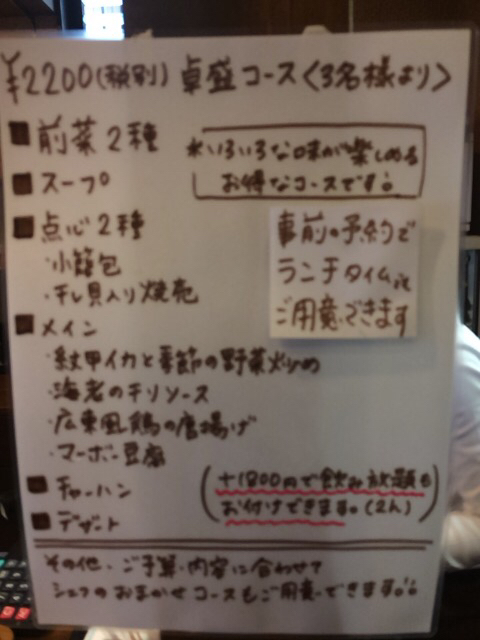 ¥2200(税別) 卓盛コース〈3名様より〉
■ 前菜2種
※いろいろな味が楽しめる
お得なコースです。
■ スープ
■ 点心2種
・小籠包
・干し貝入り焼売
事前の予約で
ランチタイムも
ご用意できます
■ メイン
・紋甲イカと季節の野菜炒め
・海老のチリソース
・広東風鶏の唐揚げ
・マーボー豆腐
■ チャーハン
■ デザート
(+1800円で飲み放題も
お付けできます。(2h))
その他、ご予算・内容に合わせて
シェフのおまかせコースもご用意できます。